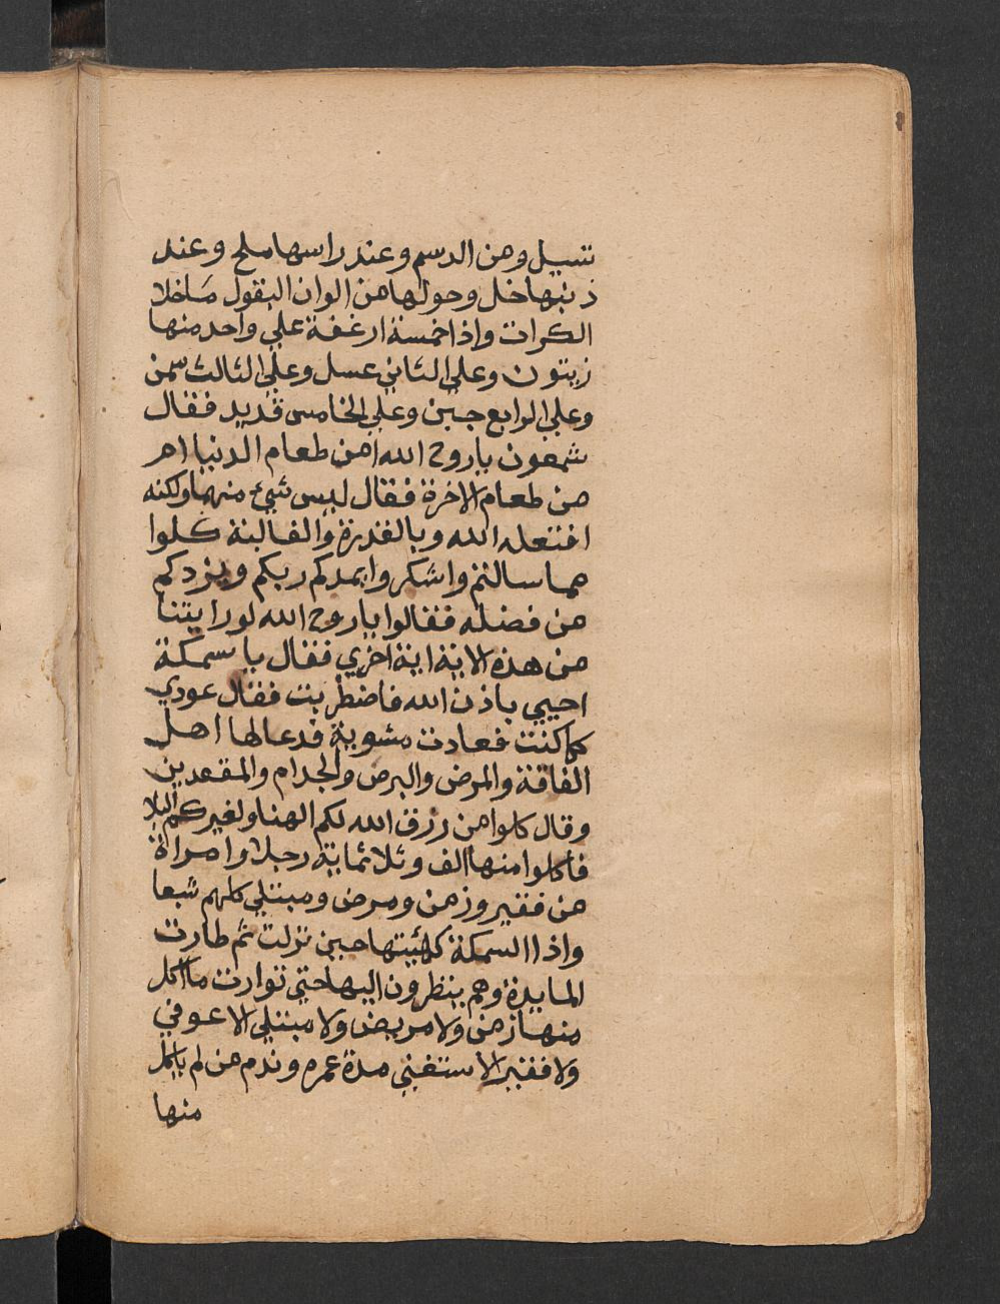 تسيل ومن الدسم وعند راسها ملح وعند
ذنبها خل وحولها من الوان البقول ما خلا
الكراث واذا خمسة ارغفة علي واحد منها
زيتون وعلي الثاني عسل وعلي الثالث سمن
وعلي الرابع جبن وعلي الخامس قديد فقال
شمعون ياروح الله امن طعام الدنيا ام
من طعام الاخرة فقال ليس شيء منهما ولكنه
افتعله الله وبالقدرة والغالبة كلوا
مما سالتم واشكروا يمدكم ربكم ويزدكم
من فضله فقالوا ياروح الله لو رايتنا
من هذه الاية اية اخري فقال يا سمكة
احيي باذن الله فاضطربت فقال عودي
كما كنت فعادت مشوية فدعا لها اهل
الفاقة والمرض والبرص والجدام والمقعدين
وقال كلوا من رزق الله لكم الهنا ولغيركم البلا
فاكلوا منها الف وثلاثماية رجلا وامراة
من فقير وزمن ومرض ومبتلي كلهم شبعا
واذا السمكة كهيئتها حين نزلت ثم طارت
المايدة وهم ينظرون اليها حتي توارت ما اكل
منها زمن ولا مريض ولا مبتلي الا عوفي
ولا فقير الا ستغني مدة عمره وندم من لم ياكل
منها